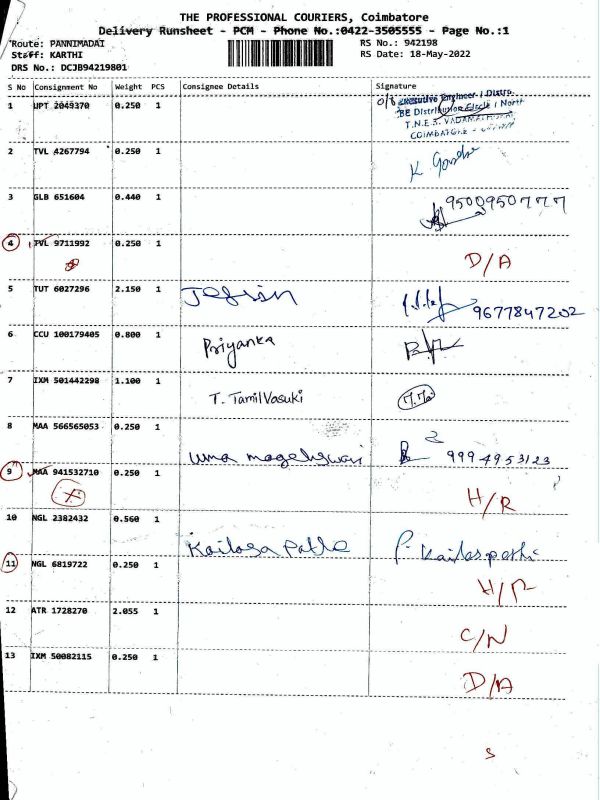 THE PROFESSIONAL COURIERS, Coimbatore
Delivery Runsheet - PCM - Phone No.:0422-3505555 - Page No.:1
Route: PANNIMADAI
RS No.: 942198
Staff: KARTHI
RS Date: 18-May-2022
DRS No.: DCJB94219801
S No Consignment No Weight PCS Consignee Details Signature
1 UPT 2049370 0.250 1 O/B Executive Engineer / Distrn.
BE Distribution Circle / North
COIMBATORE -
2 TVL 4267794 0.250 1
3 GLB 651604 0.440 1 9500950777
4 TVL 9711992 0.250 1 D/A
5 TUT 6027296 2.150 1 Jefrin 9677847202
6 CCU 100179405 0.800 1 Priyanka
7 IXM 501442298 1.100 1 T. TamilVasuki
8 MAA 566565053 0.250 1 uma mageshwari 9994953123
9 MAA 941532710 0.250 1 H/R
10 NGL 2382432 0.560 1 P. Kailaspathi
11 NGL 6819722 0.250 1 H/R
12 ATR 1728270 2.055 1 C/N
13 IXM 50082115 0.250 1 D/A